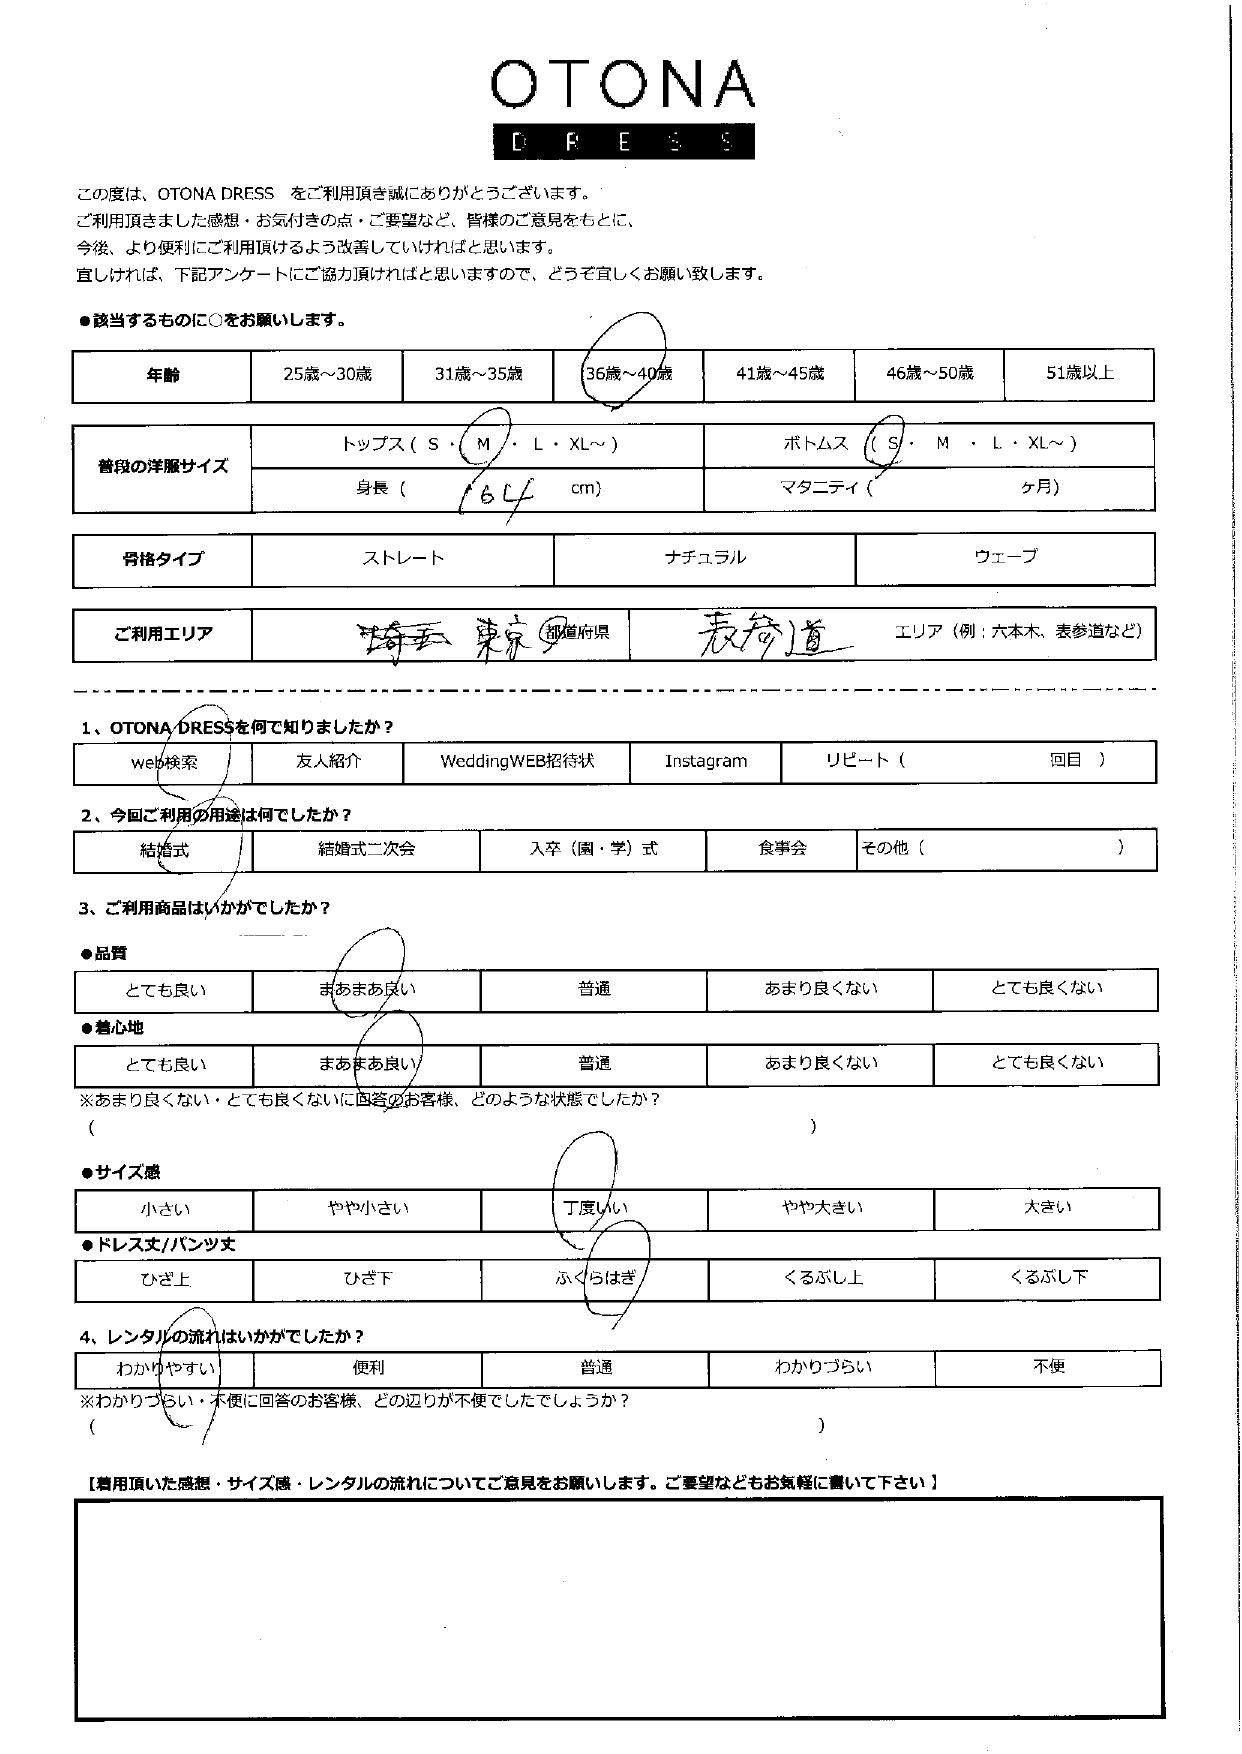 OTONA
DRESS
この度は、OTONA DRESS　をご利用頂き誠にありがとうございます。
ご利用頂きました感想・お気付きの点・ご要望など、皆様のご意見をもとに、
今後、より便利にご利用頂けるよう改善していければと思います。
宜しければ、下記アンケートにご協力頂ければと思いますので、どうぞ宜しくお願い致します。
●該当するものに○をお願いします。
年齢 25歳～30歳 31歳～35歳 36歳～40歳 41歳～45歳 46歳～50歳 51歳以上
普段の洋服サイズ トップス ( S ・ M ・ L ・ XL～ ) ボトムス ( S ・ M ・ L ・ XL～ )
身長 ( 164 cm) マタニティ ( ヶ月)
骨格タイプ ストレート ナチュラル ウェーブ
ご利用エリア 埼玉 東京 都道府県 表参道 エリア（例：六本木、表参道など）
1、OTONA DRESSを何で知りましたか？
web検索 友人紹介 WeddingWEB招待状 Instagram リピート（ 回目 ）
2、今回ご利用の用途は何でしたか？
結婚式 結婚式二次会 入卒（園・学）式 食事会 その他（ ）
3、ご利用商品はいかがでしたか？
●品質
とても良い まあまあ良い 普通 あまり良くない とても良くない
●着心地
とても良い まあまあ良い 普通 あまり良くない とても良くない
※あまり良くない・とても良くないに回答のお客様、どのような状態でしたか？
( )
●サイズ感
小さい やや小さい 丁度いい やや大きい 大きい
●ドレス丈/パンツ丈
ひざ上 ひざ下 ふくらはぎ くるぶし上 くるぶし下
4、レンタルの流れはいかがでしたか？
わかりやすい 便利 普通 わかりづらい 不便
※わかりづらい・不便に回答のお客様、どの辺りが不便でしたでしょうか？
( )
【着用頂いた感想・サイズ感・レンタルの流れについてご意見をお願いします。ご要望などもお気軽に書いて下さい】